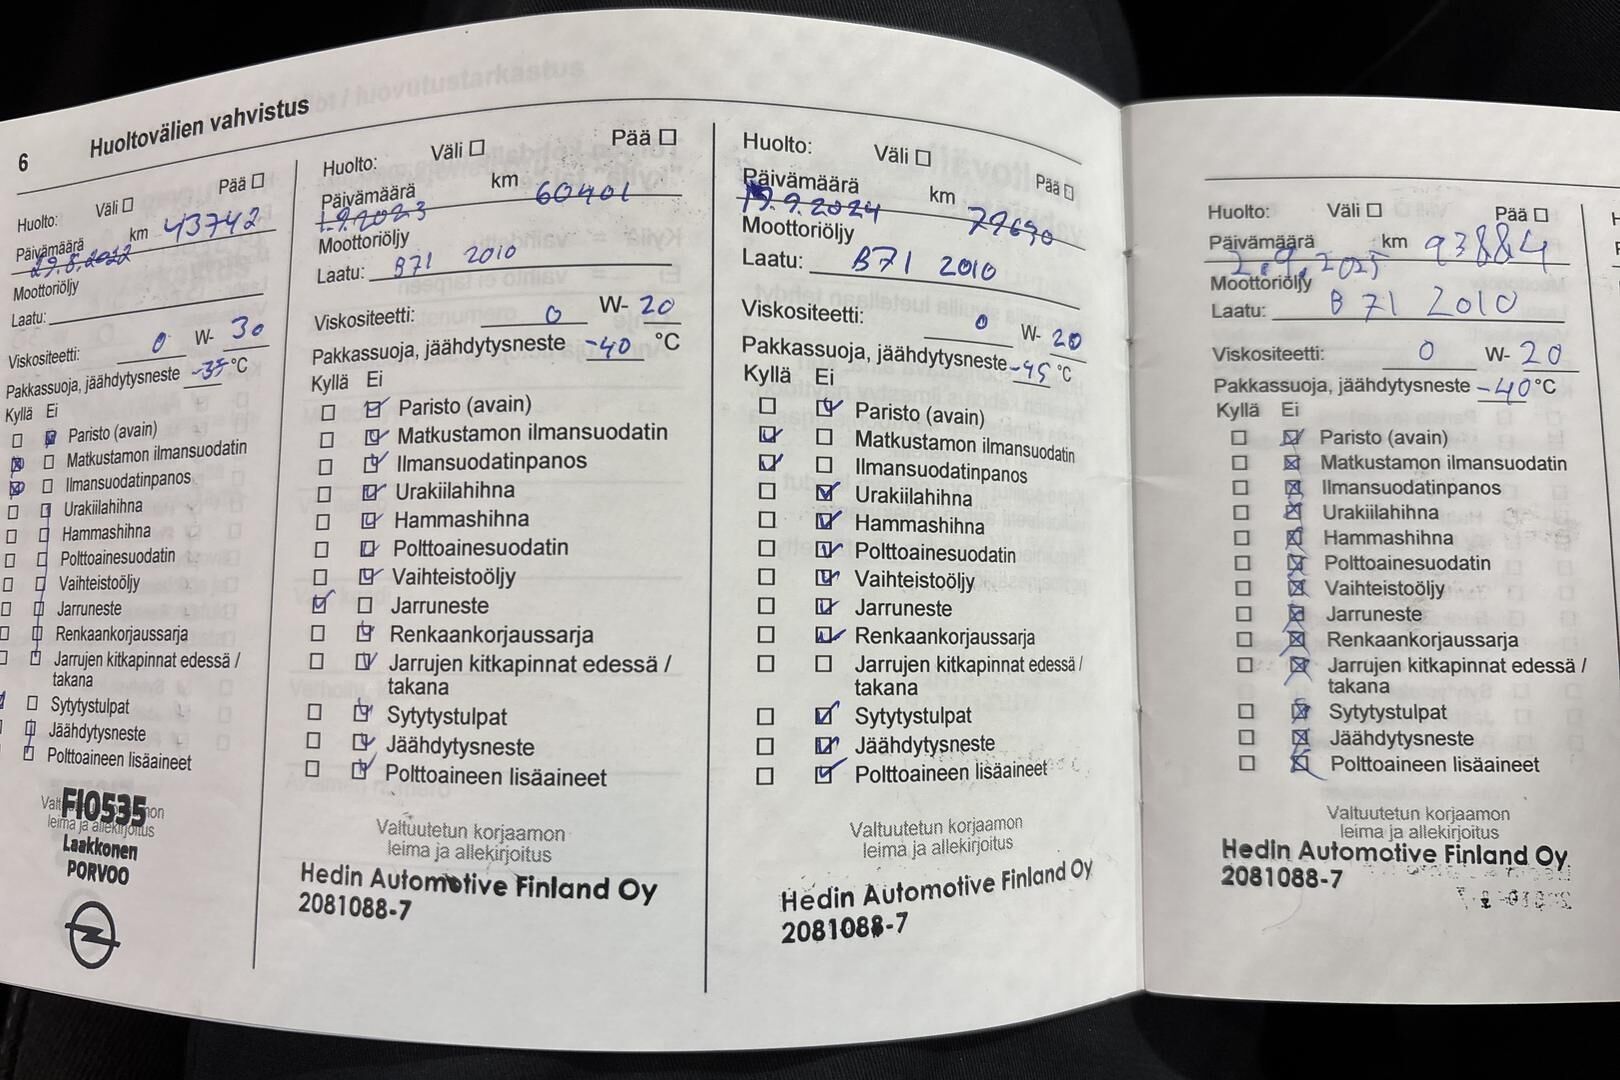 6
Huoltovälien vahvistus
Huolto: Väli Pää
Päivämäärä km 43742
29.8.2022
Moottoriöljy
Laatu:
Viskositeetti: 0 W- 30
Pakkassuoja, jäähdytysneste -35 °C
Kyllä Ei
Paristo (avain)
Matkustamon ilmansuodatin
Ilmansuodatinpanos
Urakiilahihna
Hammashihna
Polttoainesuodatin
Vaihteistoöljy
Jarruneste
Renkaankorjaussarja
Jarrujen kitkapinnat edessä /
takana
Sytytystulpat
Jäähdytysneste
Polttoaineen lisäaineet
FI0535
leima ja allekirjoitus
Laakkonen
PORVOO
Huolto: Väli Pää
Päivämäärä km 60401
1.9.2023
Moottoriöljy
Laatu: B71 2010
Viskositeetti: 0 W- 20
Pakkassuoja, jäähdytysneste -40 °C
Kyllä Ei
Paristo (avain)
Matkustamon ilmansuodatin
Ilmansuodatinpanos
Urakiilahihna
Hammashihna
Polttoainesuodatin
Vaihteistoöljy
Jarruneste
Renkaankorjaussarja
Jarrujen kitkapinnat edessä /
takana
Sytytystulpat
Jäähdytysneste
Polttoaineen lisäaineet
Valtuutetun korjaamon
leima ja allekirjoitus
Hedin Automotive Finland Oy
2081088-7
Huolto: Väli Pää
Päivämäärä km 77690
19.9.2024
Moottoriöljy
Laatu: B71 2010
Viskositeetti: 0 W- 20
Pakkassuoja, jäähdytysneste -45 °C
Kyllä Ei
Paristo (avain)
Matkustamon ilmansuodatin
Ilmansuodatinpanos
Urakiilahihna
Hammashihna
Polttoainesuodatin
Vaihteistoöljy
Jarruneste
Renkaankorjaussarja
Jarrujen kitkapinnat edessä /
takana
Sytytystulpat
Jäähdytysneste
Polttoaineen lisäaineet
Valtuutetun korjaamon
leima ja allekirjoitus
Hedin Automotive Finland Oy
2081088-7
Huolto: Väli Pää
Päivämäärä km 93884
2.9.2025
Moottoriöljy
Laatu: B 71 2010
Viskositeetti: 0 W- 20
Pakkassuoja, jäähdytysneste -40 °C
Kyllä Ei
Paristo (avain)
Matkustamon ilmansuodatin
Ilmansuodatinpanos
Urakiilahihna
Hammashihna
Polttoainesuodatin
Vaihteistoöljy
Jarruneste
Renkaankorjaussarja
Jarrujen kitkapinnat edessä /
takana
Sytytystulpat
Jäähdytysneste
Polttoaineen lisäaineet
Valtuutetun korjaamon
leima ja allekirjoitus
Hedin Automotive Finland Oy
2081088-7